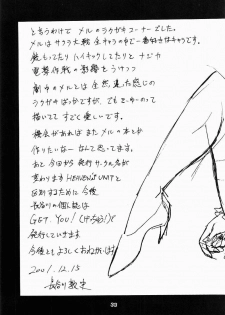 と言うわけで メルのラクガキコーナーでした。
メルは サクラ大戦 全キャラの中で一番好きなキャラです。
銃もってたり ハイキックしてたりと ナジカ
電撃作戦の影響をうけつつ
劇中のメルとは 全然違った感じの
ラクガキばっかですが、でも
描いてて すごく楽しいです。
機会があれば また メルの本とか
作りたいなーなんて思ってます。
あと 今回から 発行サークル名が
変わります HEAVEN'S UNITと
区別するために 今後
長谷川の個人誌は
GET YOU! (げっちゅう!)で
発行していきます
今後ともよろしくおねがいします
2001.12.15
33